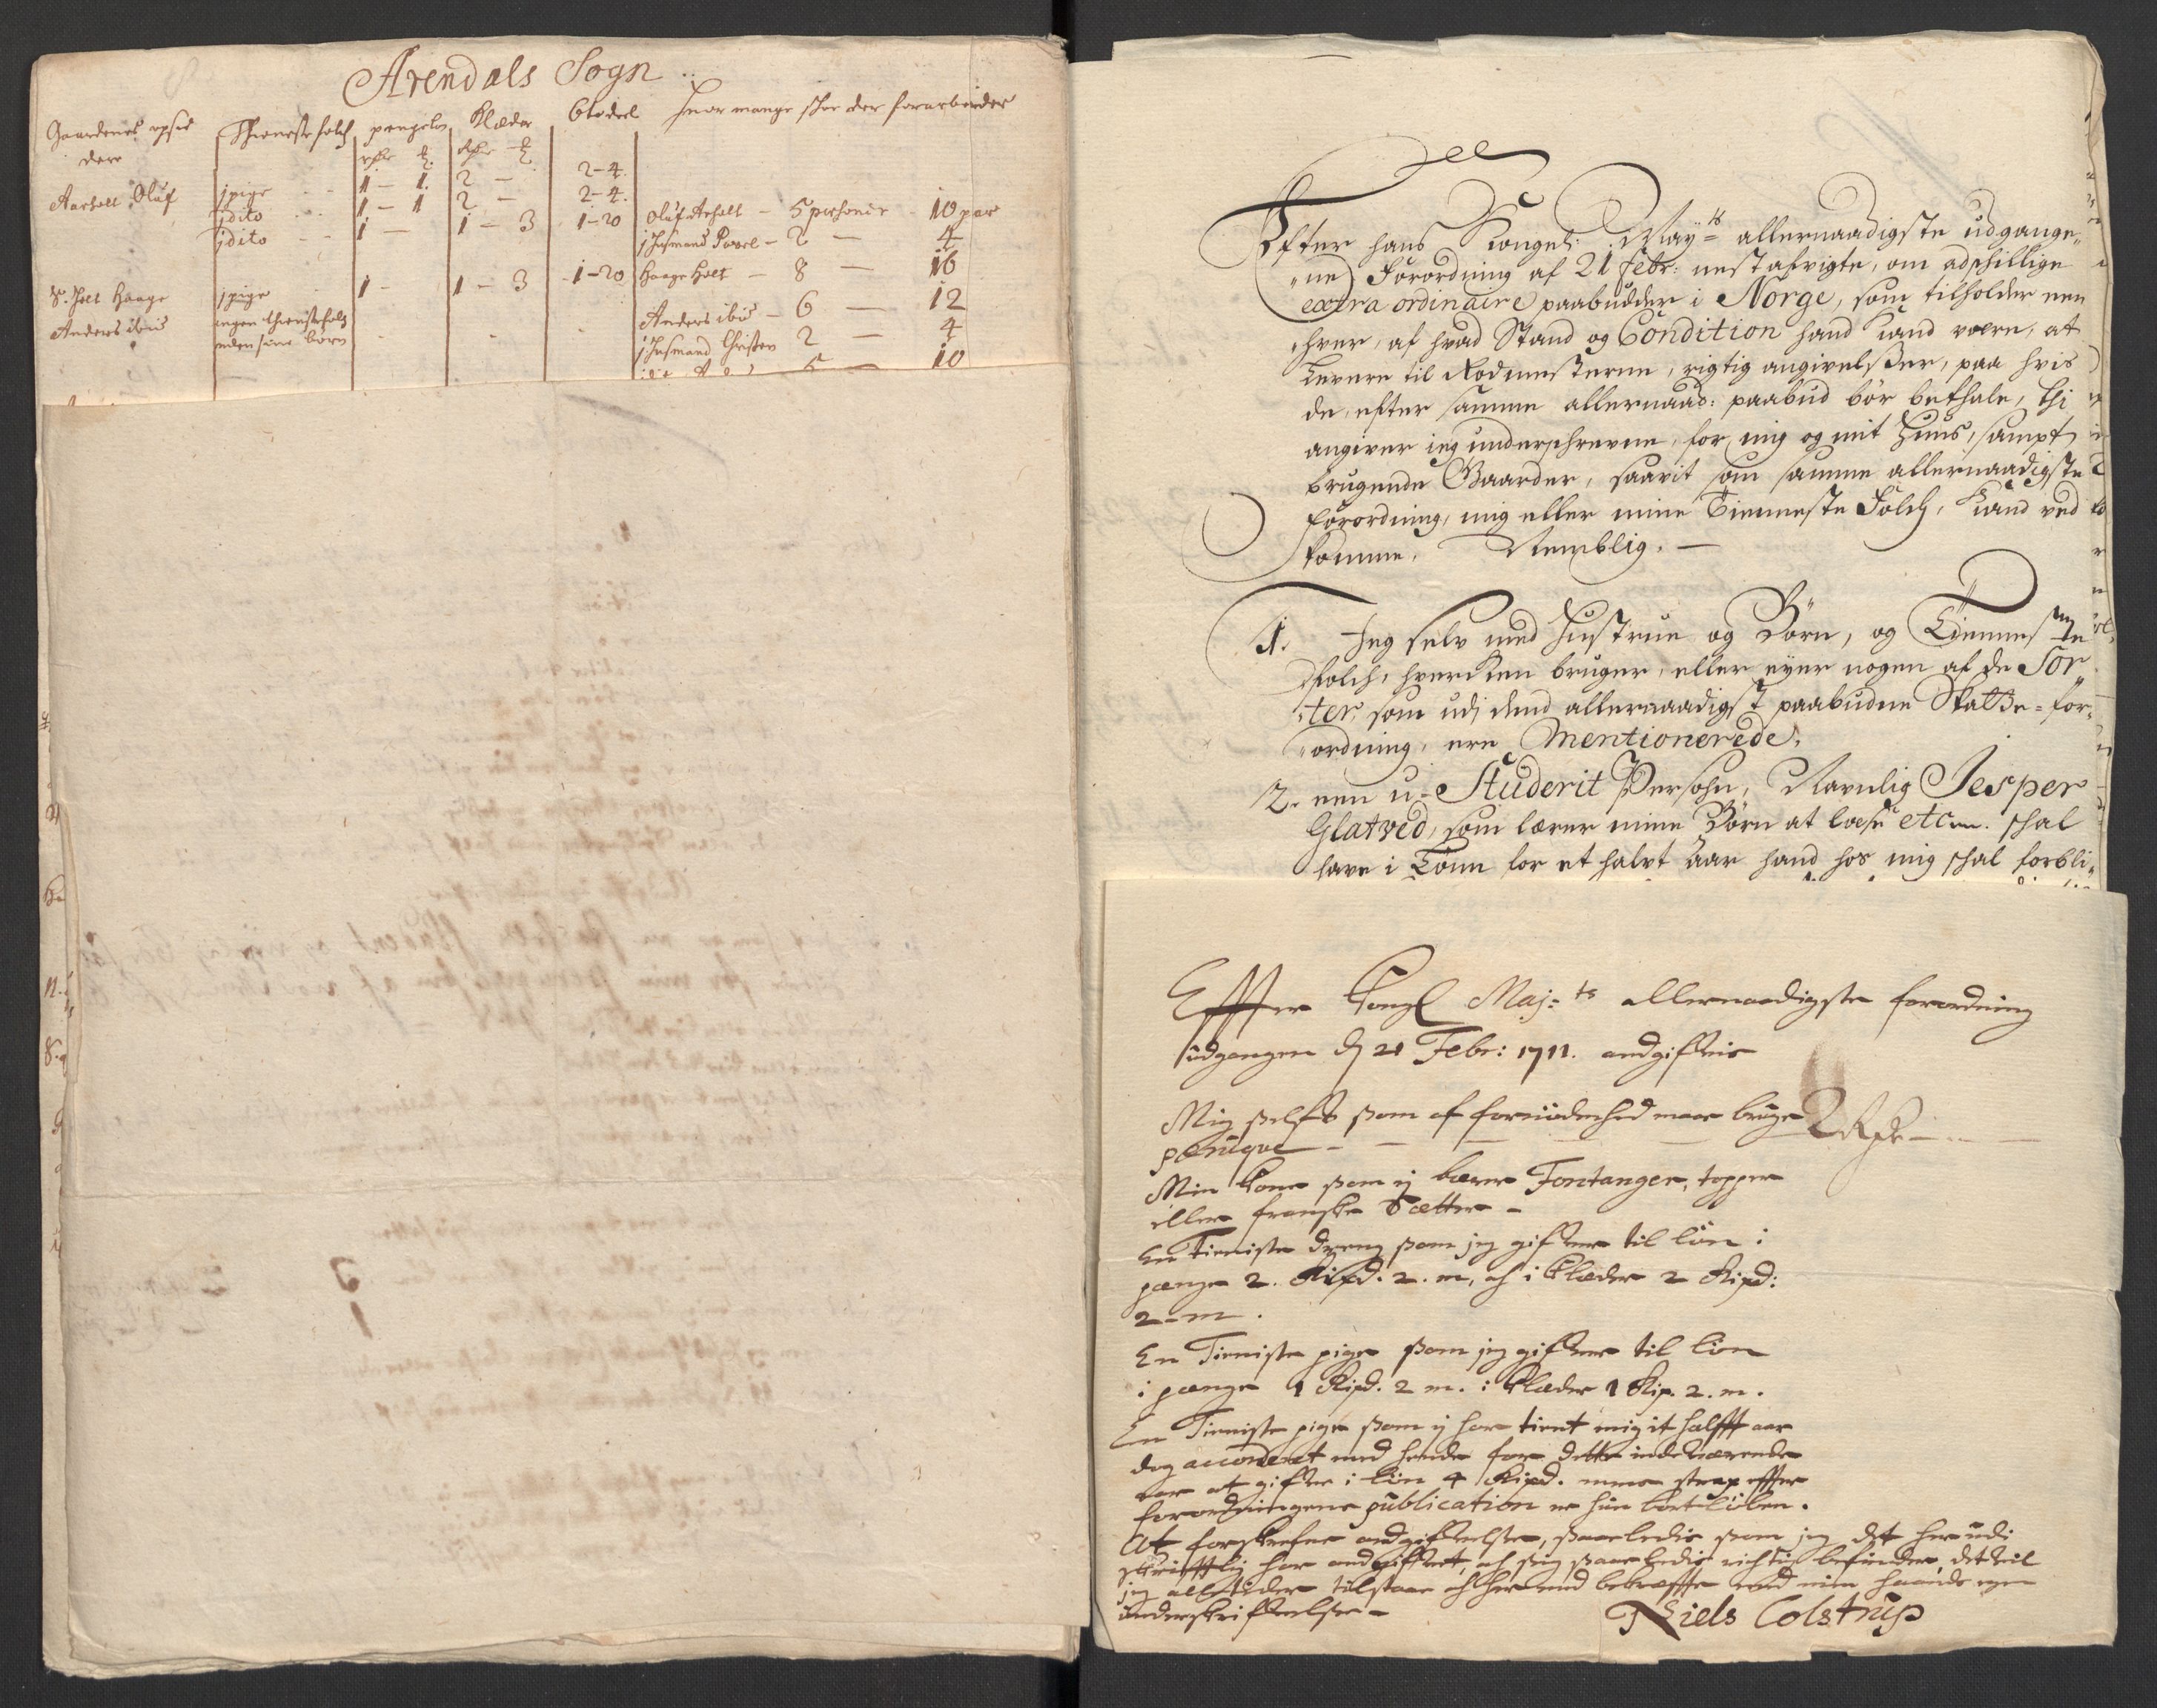 Arendals Sogn
Gaardenes opsid
dere
Thienestefolch pengeløn Klæder Clodeel Huor mange schoe der forarbeides
Aarholt Oluf 1 pige 1 - 1. 2 - 2-4.
1 dito 1 - 1 2 - 2-4.
1 dito 1 - 1 - 3 1-20 Oluf Arholt - 5 pershoner - 10 par
1 Husmand Povel - 2 - 4
S. Holt Haage 1 pige 1 - 1 - 3 1-20 Haage Holt - 8 - 16
Anders ibid ingen thienistefolch Anders ibid - 6 - 12
uden sine børn 1 Husmand Christen 2 - 4
5 - 10
Efter hans Kongel: May.ts allernaadigste udgange„
„ne Forordning af 21 Febr: nest afvigte, om adschillige
extra ordinaire paabudder i Norge, som tilholder een
hver, af hvad Stand og Condition hand kand være, at
Levere til Rodmesterne, rigtig angivelsser, paa hvis
de, efter samme allernaad: paabud bør bethale, thi
angiver ieg underschrevne, for mig og mit Huus, sampt
brugende Gaarder, saavit som samme allernaadigste
forordning, mig eller mine Tienneste Folch, kand ved
komme, Nemblig. —
1. Jeg selv med Hustrue og Børn, og Tienneste
folch, hverken bruger, eller eyer nogen af de Sor„
„ter, som udj dend allernaadigst paabudne Skatte-for„
„ordning, ere Mentionerede.
2. een u-Studerit Persohn, Navnlig Jesper
Glatved, som lærer mine Børn at læse etc. schal
have i Lønn for et halvt aar hand hos mig schal forbli„
Effter Kongl Maj:ts allernaadigste forordning
udgangen d 21 Febr: 1711. andgifves
Mig self som af fornødenhed maa bruge
peruque - - 2 Rdr -
Min Kone som ej bærer Fontanger, topper
eller franske Sætter -
En tieniste dreng som jeg gifver til løn i
penge 2. Rixd. 2. m, og i Klæder 2 Rixd:
2 - m.
En Tieniste pige som jeg gifver til løn
i penge 1 Rixd. 2 m. i Klæder 1 Rix. 2. m.
En Tieniste pige som ej har tient mig it halfft aar
dog accorderet med hende for dette indeværende
aar at gifve i løn 4 Rixd. men strax effter
forordningens publication er hun bortløben.
At forskrefne andgifvelse, saaledis som jeg det her udi
skrifftlig har andgifvet, og sig saaledis richtig befinder, det vil
jeg alletider tilstaae og hermed bekreffte med min haands egen
underskrifvelse -
Niels Colstrup